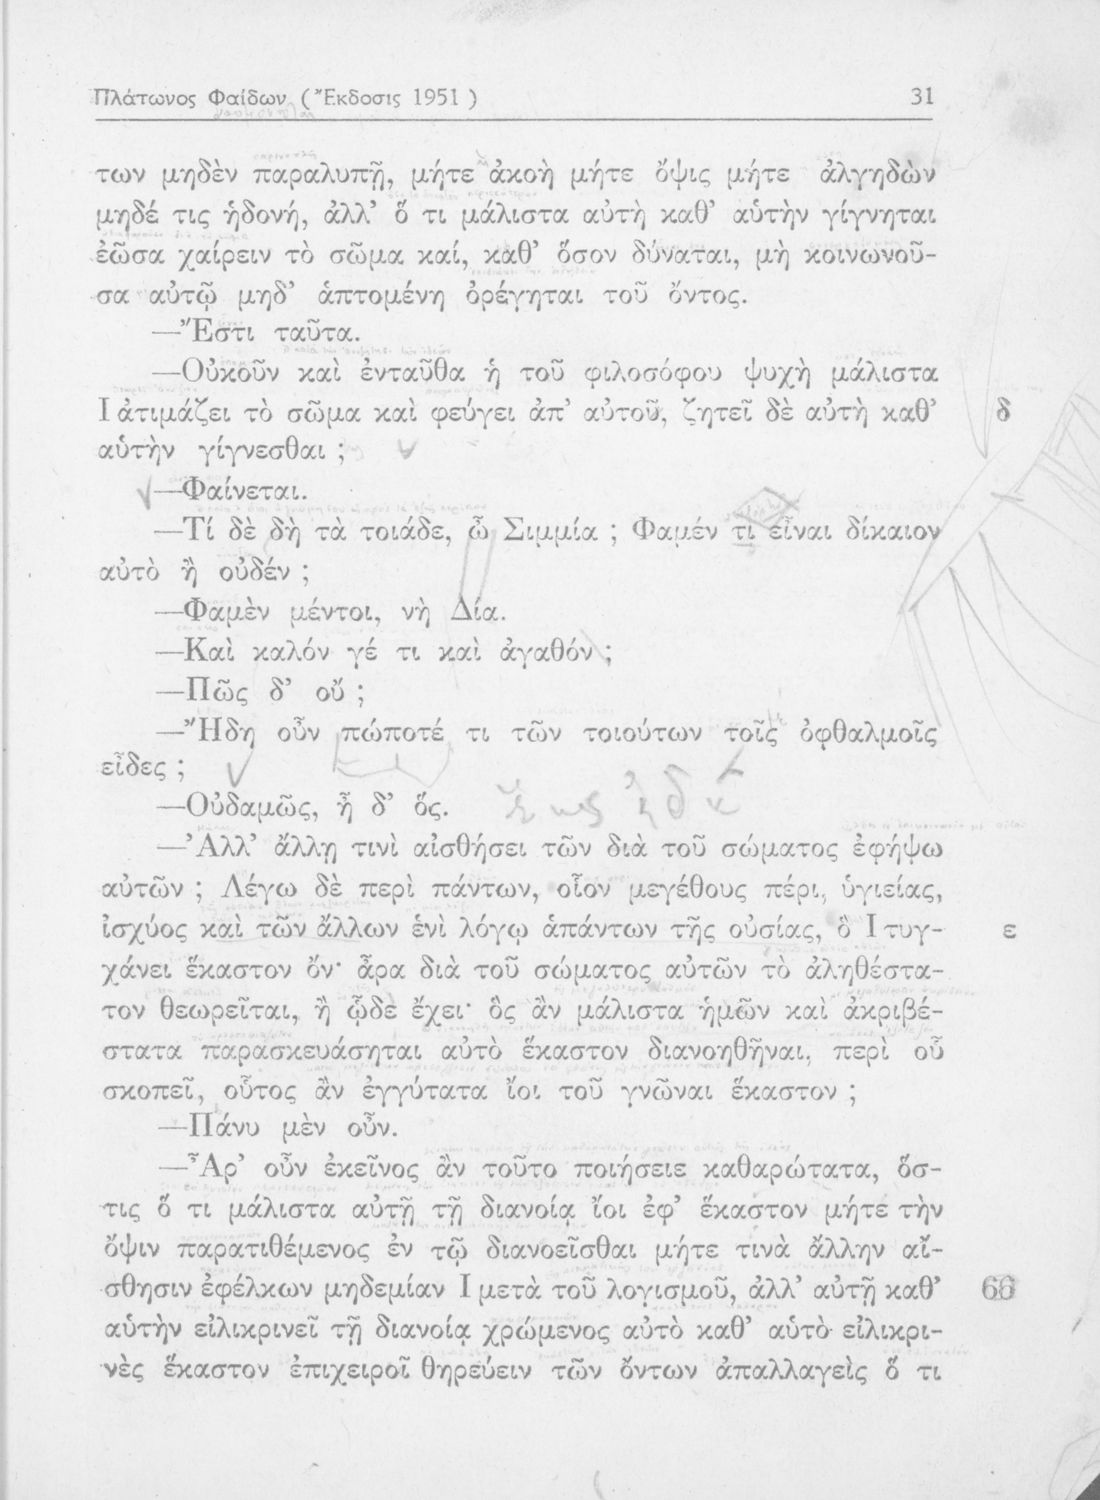 Πλάτωνος Φαίδων (Ἔκδοσις 1951) 31
των μηδὲν παραλυπῇ, μήτε ἀκοὴ μήτε ὄψις μήτε ἀλγηδὼν
μηδέ τις ἡδονή, ἀλλ’ ὅ τι μάλιστα αὐτὴ καθ’ αὑτὴν γίγνηται
ἐῶσα χαίρειν τὸ σῶμα καί, καθ’ ὅσον δύναται, μὴ κοινωνοῦ-
σα αὐτῷ μηδ’ ἁπτομένη ὀρέγηται τοῦ ὄντος.
—Ἔστι ταῦτα.
—Οὐκοῦν καὶ ἐνταῦθα ἡ τοῦ φιλοσόφου ψυχὴ μάλιστα
Ι ἀτιμάζει τὸ σῶμα καὶ φεύγει ἀπ’ αὐτοῦ, ζητεῖ δὲ αὐτὴ καθ’ δ
αὑτὴν γίγνεσθαι ;
—Φαίνεται.
—Τί δὲ δὴ τὰ τοιάδε, ὦ Σιμμία ; Φαμέν τι εἶναι δίκαιον
αὐτὸ ἢ οὐδέν ;
—Φαμὲν μέντοι, νὴ Δία.
—Καὶ καλόν γέ τι καὶ ἀγαθόν ;
—Πῶς δ’ οὔ ;
—Ἤδη οὖν πώποτέ τι τῶν τοιούτων τοῖς ὀφθαλμοῖς
εἶδες ;
—Οὐδαμῶς, ἦ δ’ ὅς.
—Ἀλλ’ ἄλλῃ τινὶ αἰσθήσει τῶν διὰ τοῦ σώματος ἐφήψω
αὐτῶν ; Λέγω δὲ περὶ πάντων, οἷον μεγέθους πέρι, ὑγιείας,
ἰσχύος καὶ τῶν ἄλλων ἑνὶ λόγῳ ἁπάντων τῆς οὐσίας, ὃ Ι τυγ- ε
χάνει ἕκαστον ὄν· ἆρα διὰ τοῦ σώματος αὐτῶν τὸ ἀληθέστα-
τον θεωρεῖται, ἢ ᾧδε ἔχει· ὃς ἂν μάλιστα ἡμῶν καὶ ἀκριβέ-
στατα παρασκευάσηται αὐτὸ ἕκαστον διανοηθῆναι, περὶ οὗ
σκοπεῖ, οὗτος ἂν ἐγγύτατα ἴοι τοῦ γνῶναι ἕκαστον ;
—Πάνυ μὲν οὖν.
—Ἆρ’ οὖν ἐκεῖνος ἂν τοῦτο ποιήσειε καθαρώτατα, ὅσ-
τις ὅ τι μάλιστα αὐτῇ τῇ διανοίᾳ ἴοι ἐφ’ ἕκαστον μήτε τὴν
ὄψιν παρατιθέμενος ἐν τῷ διανοεῖσθαι μήτε τινὰ ἄλλην αἴ-
σθησιν ἐφέλκων μηδεμίαν Ι μετὰ τοῦ λογισμοῦ, ἀλλ’ αὐτῇ καθ’ 66
αὑτὴν εἰλικρινεῖ τῇ διανοίᾳ χρώμενος αὐτὸ καθ’ αὑτὸ εἰλικρι-
νὲς ἕκαστον ἐπιχειροῖ θηρεύειν τῶν ὄντων ἀπαλλαγεὶς ὅ τι